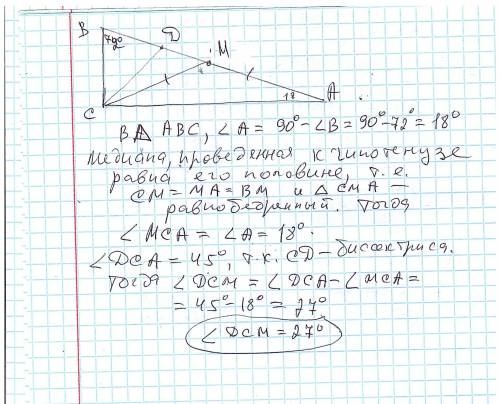 B
D
M
79°
18
A
C
В △ ABC, ∠A = 90° - ∠B = 90° - 72° = 18°
Медиана, проведенная к гипотенузе
равна его половине, т.е.
CM = MA = BM и △ CMA —
равнобедренный. Тогда
∠ MCA = ∠A = 18°.
∠DCA = 45°, т.к. CD - биссектриса.
Тогда ∠DCM = ∠DCA - ∠MCA =
= 45° - 18° = 27°
∠ DCM = 27°